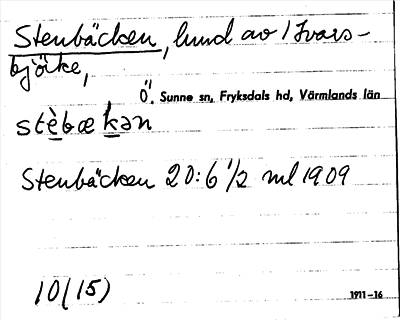 Stenbäcken, lund av Ivars-
björke,
Ö. Sunne sn, Fryksdals hd, Värmlands län
stèbækən
Stenbäcken 20:6 1/2 ml 1909
10(15)
1911–16